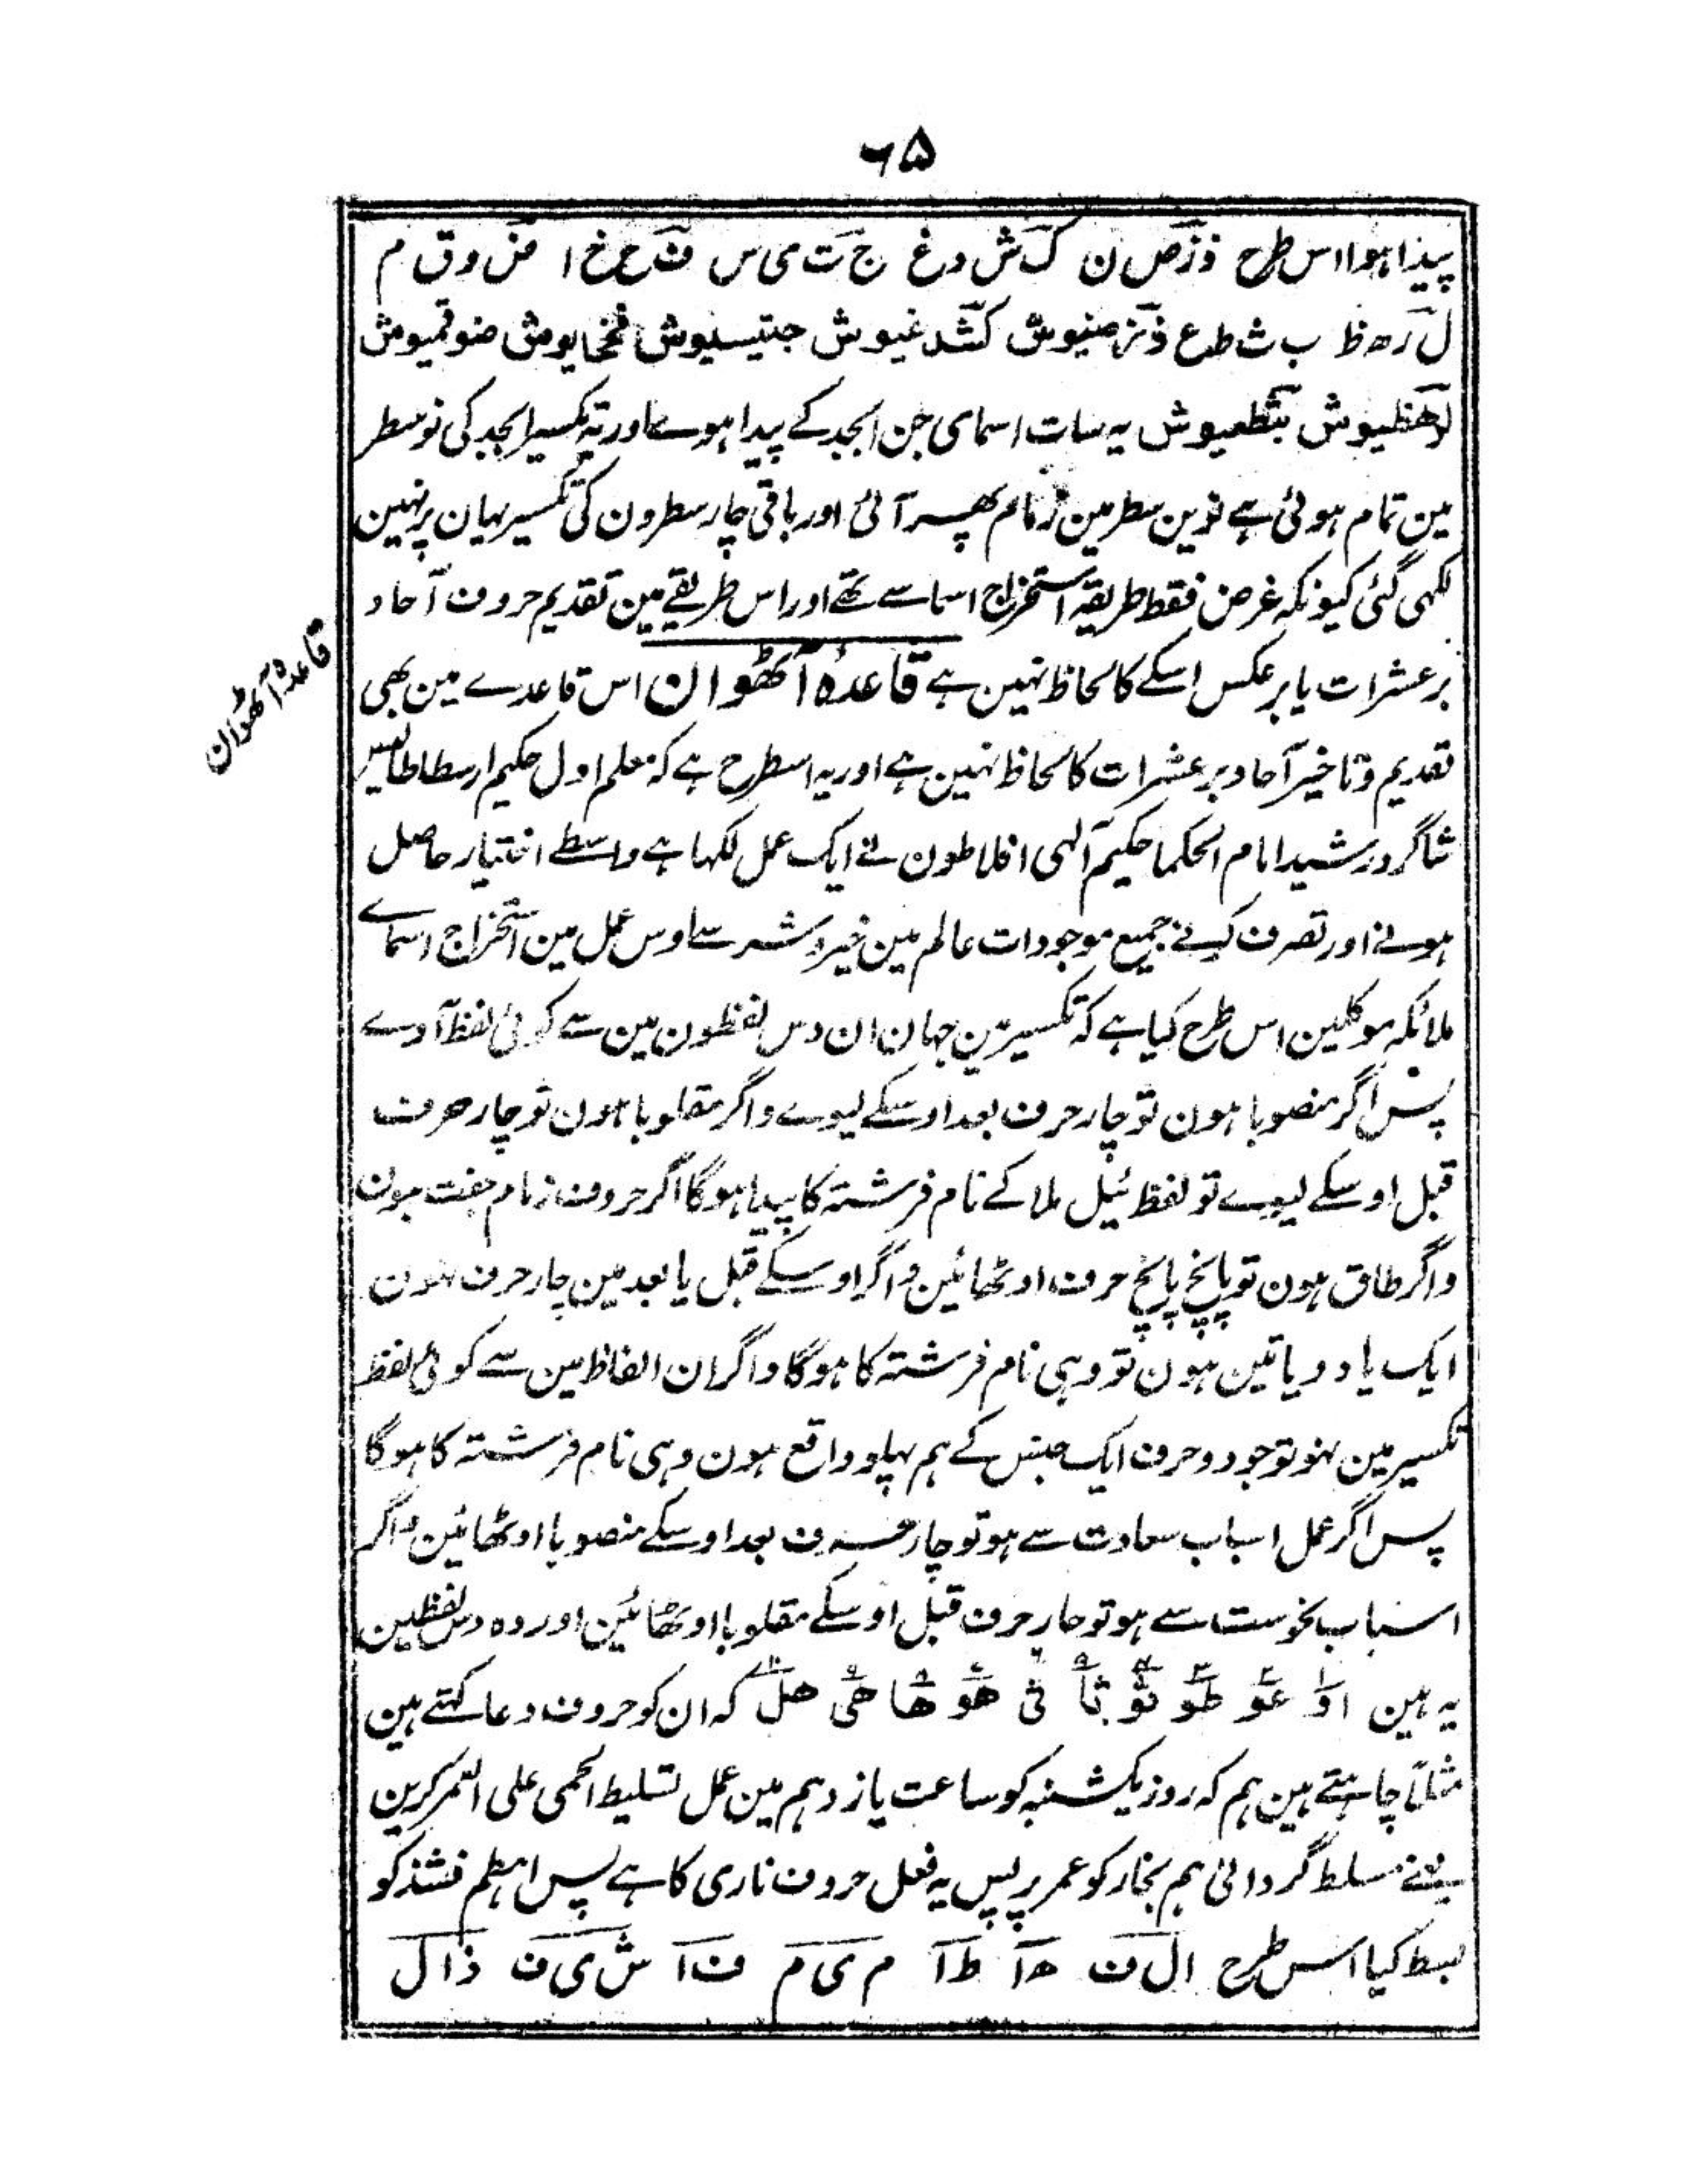 ٦۵
پیدا ہوا اس طرح ذ ز ص ن ک ش د غ ج ت ی س ف ح خ ا ض و ق م
ل ر ہ ظ ب ث ط ع ذزصنیوش کشدغیوش جتیسیوش فحخایوش ضوقمیوش
لرھظیوش بثطعیوش یہ سات اسمای جن ابجد کے پیدا ہوے اور یہ تکسیر ابجد کی نو سطر
مین تمام ہوئی ہے نوین سطر مین زمام پھر آئی اور باقی چار سطرون کی تکسیر یہان پر نہین
لکہی گئی کیونکہ غرض فقط طریقہ استخراج اسما سے تھے اور اس طریقے مین تقدیم حروف آحاد
بر عشرات یا برعکس اسکے کا لحاظ نہین ہے قاعدۂ آٹھوان اس قاعدے مین بھی
قاعدۂ آٹھوان
تقدیم و تاخیر آحاد بر عشرات کا لحاظ نہین ہے اور یہ اسطرح ہے کہ معلم اول حکیم ارسطاطالیس
شاگرد رشید امام الحکما حکیم آلہی افلاطون نے ایک عمل لکہا ہے واسطے اختیار حاصل
ہونے اور تصرف کرنے جمیع موجودات عالم مین خیر و شر سے اوس عمل مین استخراج اسماے
ملائکہ موکلین اس طرح کیا ہے کہ تکسیر مین جہان ان دس لفظون مین سے کوئی لفظ آوے
پس اگر منصوبا ہون تو چار حرف بعد اوسکے لیوے و اگر مقلوبا ہون تو چار حرف
قبل اوسکے لیوے تو لفظ ئیل ملا کے نام فرشتہ کا پیدا ہوگا اگر حروف زمام جفت ہون
و اگر طاق ہون تو پانچ پانچ حرف اوٹھائین و اگر اوسکے قبل یا بعد مین چار حرف نہون
ایک یا دو یا تین ہون تو وہی نام فرشتہ کا ہوگا و اگر ان الفاظ مین سے کوئی لفظ
تکسیر مین نہو تو جو دو حرف ایک جنس کے ہم پہلو واقع ہون وہی نام فرشتہ کا ہوگا
پس اگر عمل اسباب سعادت سے ہو تو چار حرف بعد اوسکے منصوبا اوٹھائین و اگر
اسباب نحوست سے ہو تو چار حرف قبل اوسکے مقلوبا اوٹھائین اور وہ دس لفظین
یہ ہین او عو طو ثو ثا ثی ھو ھا ھی ھل کہ ان کو حروف دعا کہتے ہین
مثلاً چاہتے ہین ہم کہ روز یکشنبہ کو ساعت یازدہم مین عمل تسلیط الحمی علی العمر کرین
یعنے مسلط گردانی ہم بخار کو عمر پر پس یہ فعل حروف ناری کا ہے پس اہطم فشذ کو
بسط کیا اس طرح ال ف ھ ا ط ا م ی م ف ا ش ی ف ذ ا ل